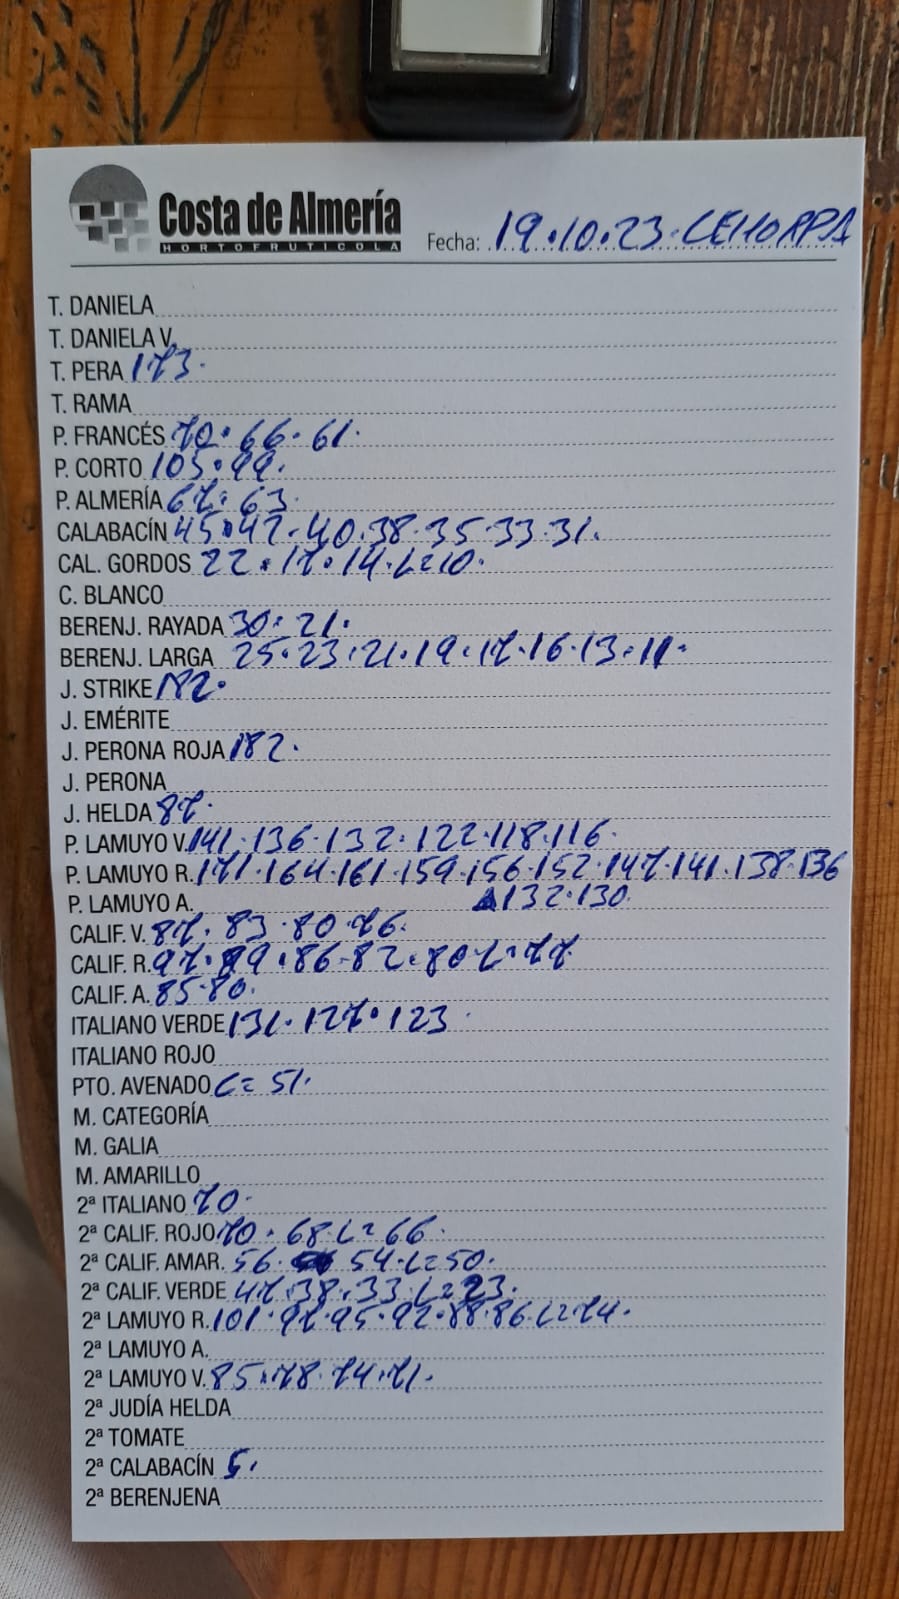 Costa de Almería
HORTOFRUTICOLA
Fecha: 19.10.23.CEHORPA
T. DANIELA
T. DANIELA V.
T. PERA 173.
T. RAMA
P. FRANCÉS 70.66.61.
P. CORTO 105.99.
P. ALMERÍA 67.63.
CALABACÍN 45.42.40.38.35.33.31.
CAL. GORDOS 22.17.14.L=10.
C. BLANCO
BERENJ. RAYADA 30.21.
BERENJ. LARGA 25.23.21.19.17.16.13.11.
J. STRIKE 182.
J. EMÉRITE
J. PERONA ROJA 182.
J. PERONA
J. HELDA 87.
P. LAMUYO V. 141.136.132.122.118.116.
P. LAMUYO R. 171.164.161.159.156.152.147.141.138.136
P. LAMUYO A. 132.130.
CALIF. V. 87.83.80.76.
CALIF. R. 97.89.86.82.80.L=77.
CALIF. A. 85.80.
ITALIANO VERDE 131.127.123
ITALIANO ROJO
PTO. AVENADO L=51.
M. CATEGORÍA
M. GALIA
M. AMARILLO
2ª ITALIANO 70.
2ª CALIF. ROJO 70.68.L=66.
2ª CALIF. AMAR. 56. 54.L=50.
2ª CALIF. VERDE 47.38.33.L=23.
2ª LAMUYO R. 101.97.95.92.88.86.L=74.
2ª LAMUYO A.
2ª LAMUYO V. 85.78.74.71.
2ª JUDÍA HELDA
2ª TOMATE
2ª CALABACÍN 5.
2ª BERENJENA